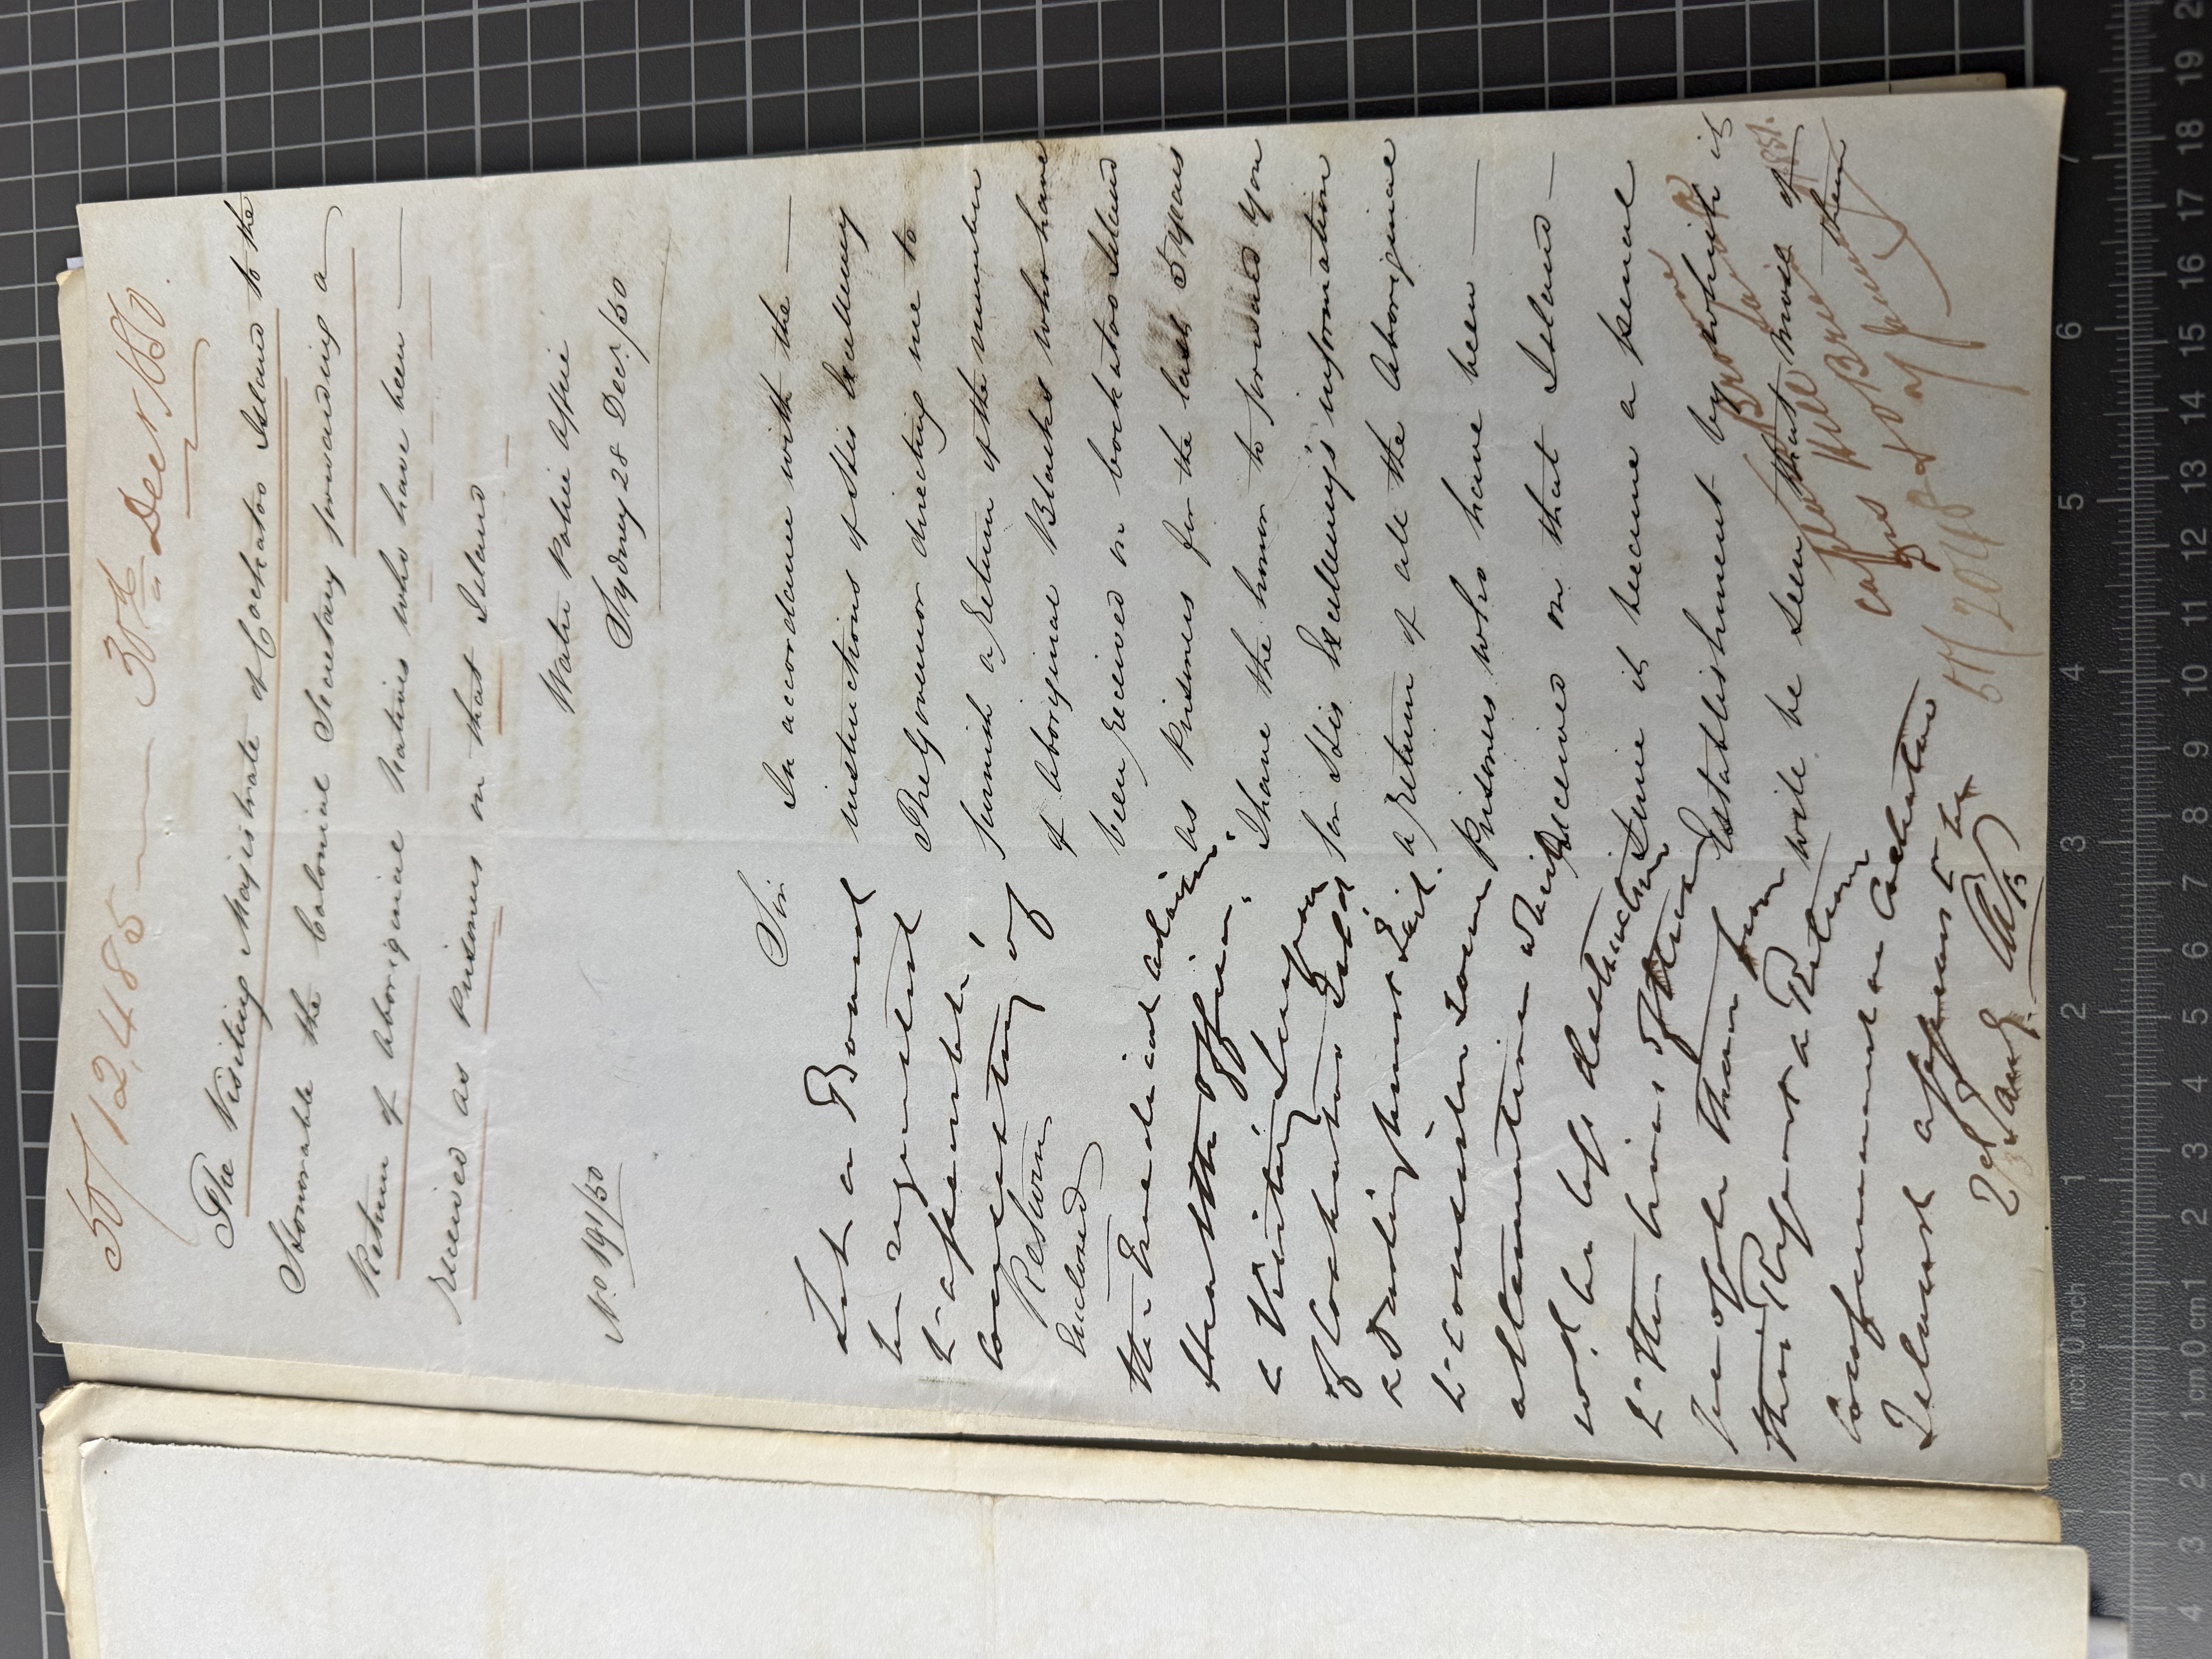 50/12,485 — 30th Decr 1850
The Visiting Magistrate of Cockatoo Island to the
Honorable the Colonial Secretary forwarding a
Return of Aboriginal Natives who have been —
received as Prisoners on that Island
Water Police Office
No 191/50
Sydney 28 Decr/50
Sir
In accordance with the —
instructions of His Excellency
The Governor directing me to
furnish a Return of the number
of Aboriginal Blacks who have
been received on Cockatoo Island
as Prisoners for the last 5 years
I have the honor to forward you
for His Excellency's information
a Return of all the Aboriginal
Prisoners who have been —
received on that Island —
since it became a penal
Establishment by which it
will be seen that most of
them
Let a Board
be
assembled
consisting of
Return
Enclosed
the Medical Adviser
the Health Officer
& Visiting Surgeon
of Cockatoo Isld
& Darlinghurst Gaol
to consider some
alternative which
wd be less destructive
to the lives of these
people than from
this Report & Return
Confinement on Cockatoo
Island appears to be
2d Jany
51/